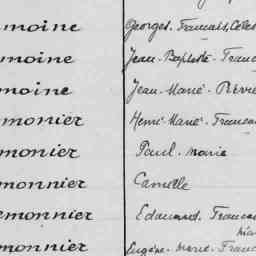 moine Georges. Francais, Céles
moine Jean-Baptiste. Franc
moine Jean-Marie. Pierre
monier Henri-Marie. Francois
monier Paul. marie
monnier Camille
emonnier Edouard. Francoi
monnier Eugène. Marie. Franc